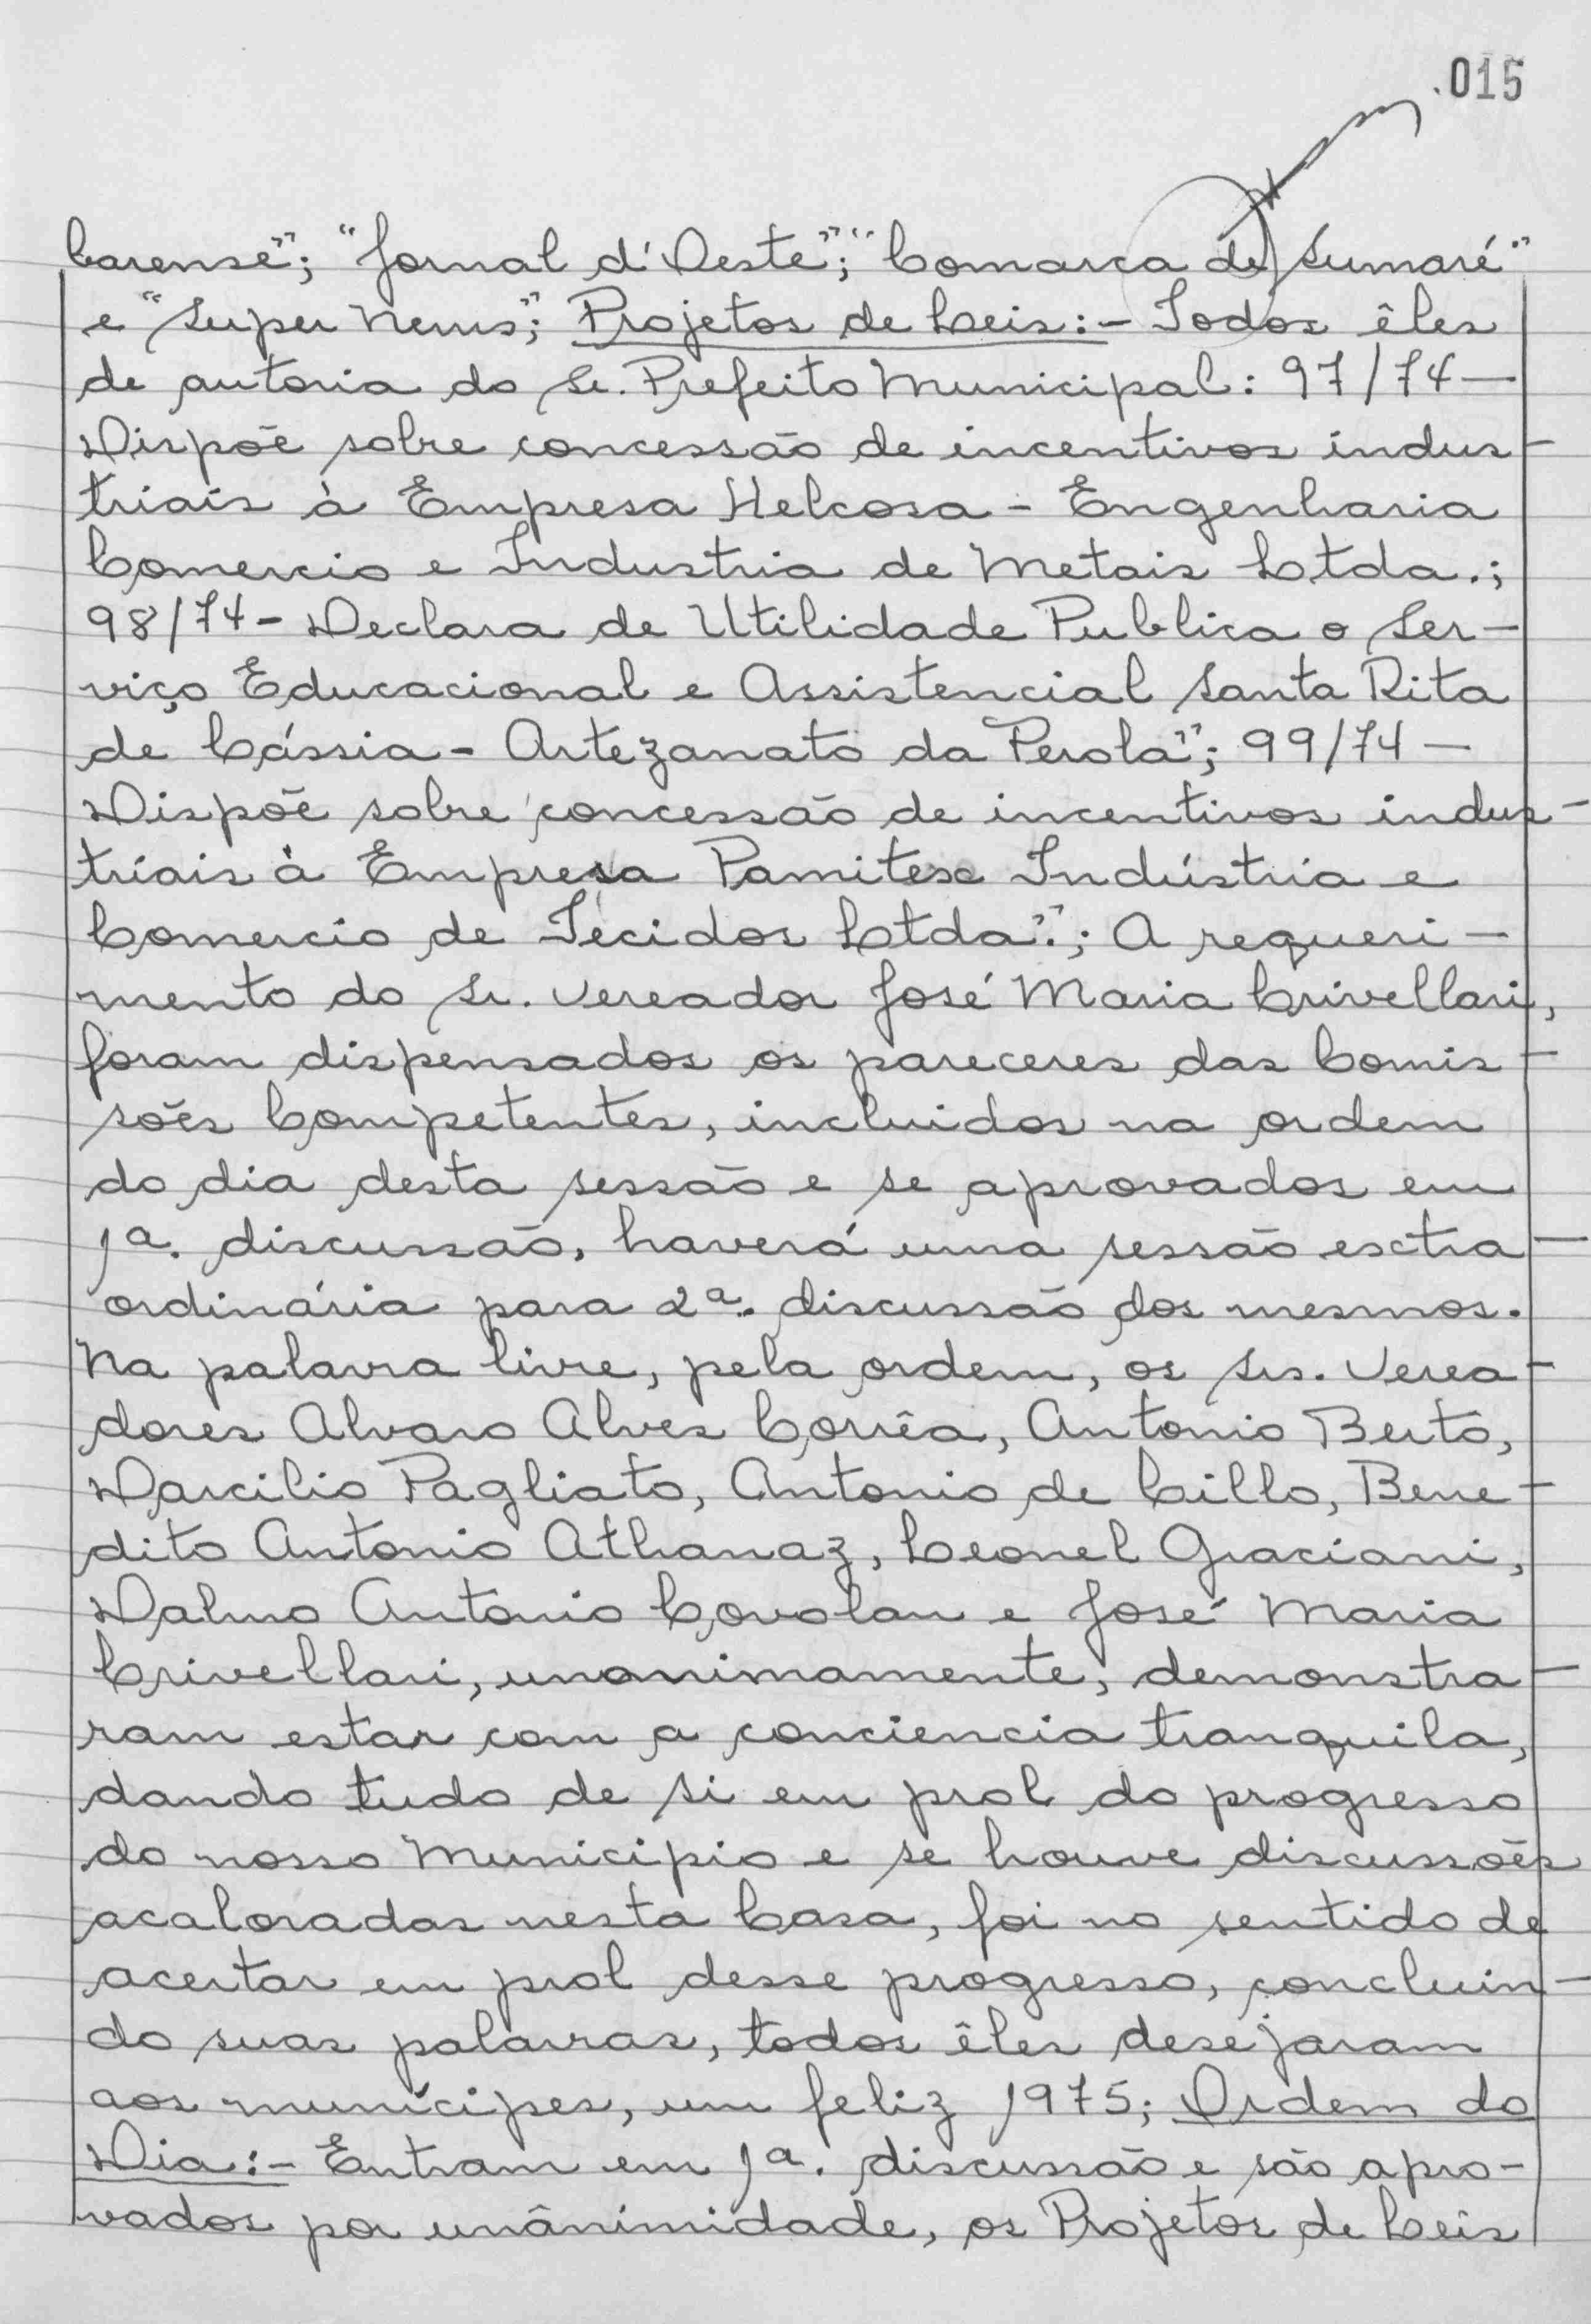 .015
barense"; "Jornal d'Oeste"; "Comarca de Sumaré"
e "Super News"; Projetos de Leis:- Todos êles
de autoria do Sr. Prefeito Municipal: 97/74 -
Dispõe sobre concessão de incentivos indus-
triais à Empresa Helcosa - Engenharia
Comercio e Industria de Metais Ltda.;
98/74 - Declara de Utilidade Publica o Ser-
viço Educacional e Assistencial Santa Rita
de Cássia - Artezanato da Perola"; 99/74 -
Dispõe sobre concessão de incentivos indus-
triais à Empresa Pamitex Indústria e
Comercio de Tecidos Ltda."; A requeri-
mento do Sr. Vereador José Maria Crivellari,
foram dispensados os pareceres das Comis-
sões Competentes, incluidos na ordem
do dia desta sessão e se aprovados em
1a. discussão, haverá uma sessão extra-
ordinária para 2a. discussão dos mesmos.
Na palavra livre, pela ordem, os Srs. Verea-
dores Alvaro Alves Corrêa, Antonio Berto,
Darcilio Pagliato, Antonio de Cillo, Bene-
dito Antonio Athanaz, Leonel Graciani,
Dalmo Antonio Covolan e José Maria
Crivellari, unanimamente, demonstra-
ram estar com a conciencia tranquila,
dando tudo de si em prol do progresso
do nosso Municipio e se houve discussões
acaloradas nesta Casa, foi no sentido de
acertar em prol desse progresso, concluin-
do suas palavras, todos êles desejaram
aos munícipes, um feliz 1975; Ordem do
Dia:- Entram em 1a. discussão e são apro-
vados por unânimidade, os Projetos de Leis